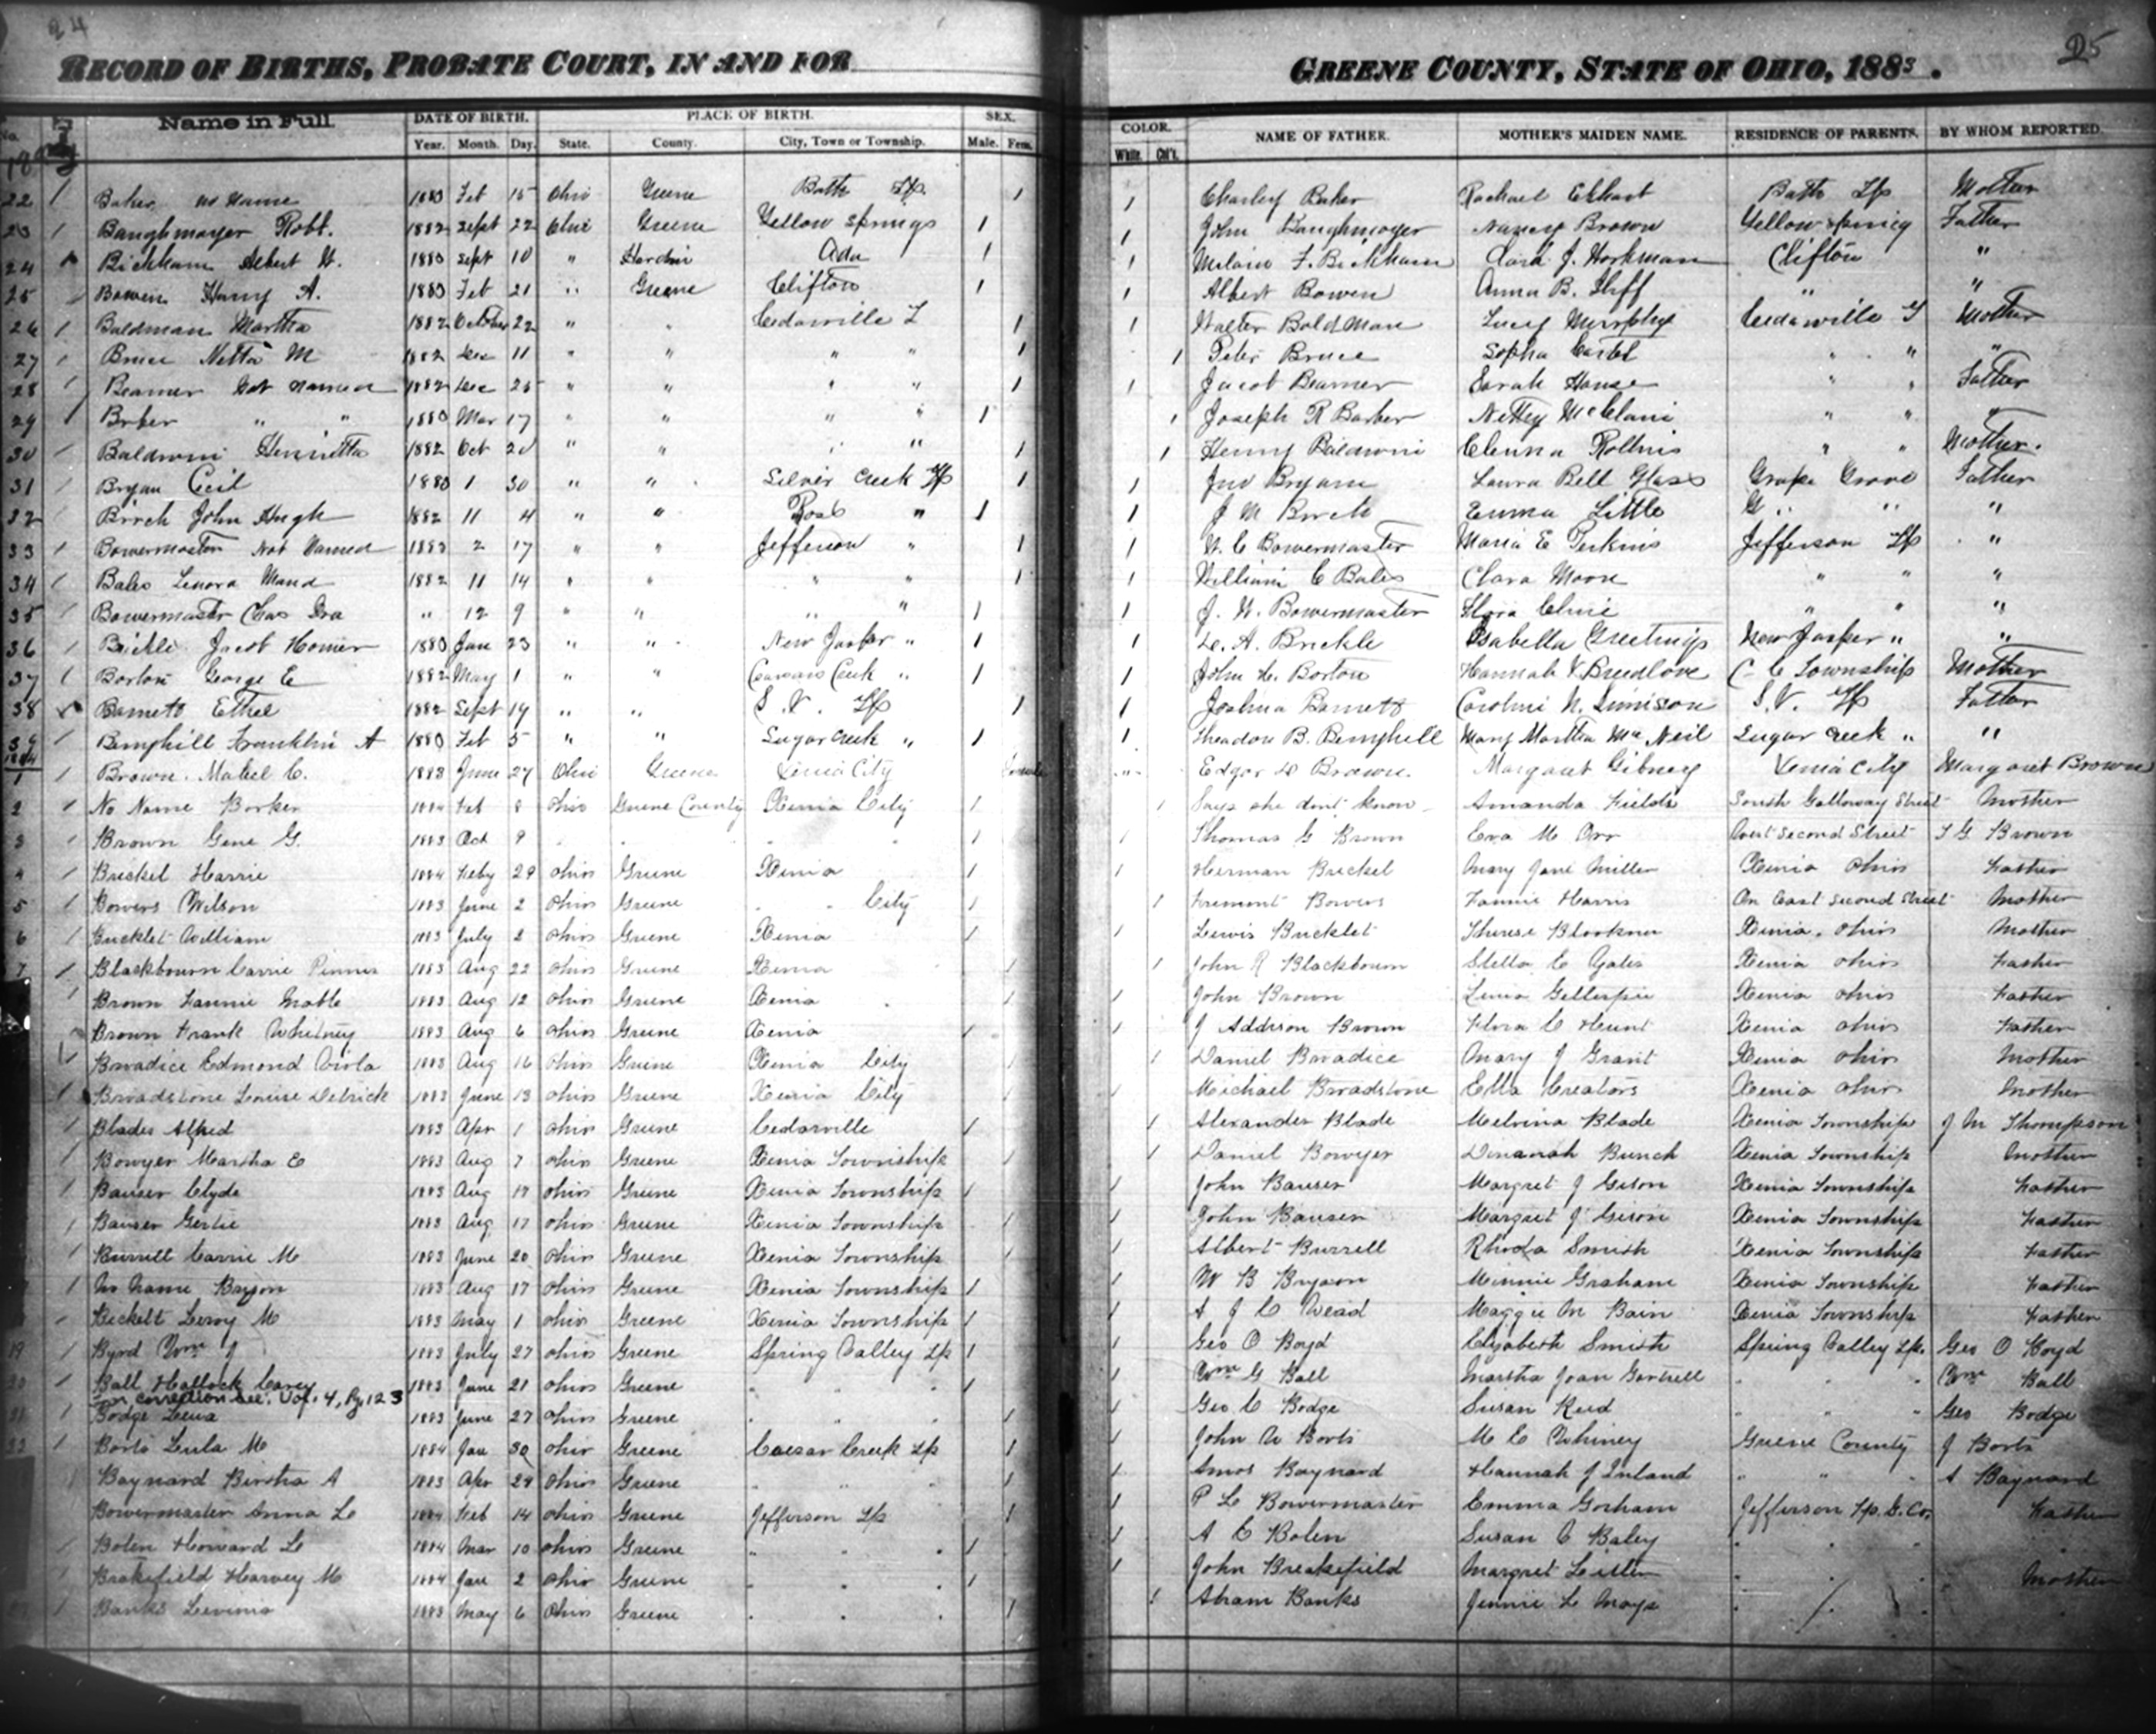 24
RECORD OF BIRTHS, PROBATE COURT, IN AND FOR
GREENE COUNTY, STATE OF OHIO, 1883.
25
No. Name in Full DATE OF BIRTH. PLACE OF BIRTH. SEX. COLOR. NAME OF FATHER. MOTHER'S MAIDEN NAME. RESIDENCE OF PARENTS. BY WHOM REPORTED.
Year. Month. Day. State. County. City, Town or Township. Male. Fem. White. Col'd.
22 / Baker no name 1883 Feb 15 Ohio Greene Bath Tp / / Charley Baker Rachael Ekhart Bath Tp Mother
23 / Baughmoyer Robt. 1882 Sept 22 Ohio Greene Yellow Springs / / John Baughmoyer Nancy Brown Yellow Spring Father
24 Bickham Albert W. 1883 Sept 10 " Hardin Ada / / F. Bickham Clara J. Workman Clifton "
25 Bowen Harry A. 1883 Feb 21 " Greene Clifton / / Albert Bowen Anna B. Iliff " "
26 / Boldman Martha 1882 October 22 " " Cedarville T / / Walter Boldman Lucy Murphy Cedarville T Mother
27 / Bruce Netta M 1882 Dec 11 " " " " / / Peter Bruce Sopha " " "
28 / Beamer Not named 1882 Dec 25 " " " " / / Jacob Beamer Sarah House " " Father
29 / Brber " " 1883 Mar 17 " " " " / / Joseph R Barber Nettey McClani " " "
30 / Baldwin Henrietta 1882 Oct 20 " " " " / / Henry Baldwin Rollins " " Mother.
31 / Bryan Cecil 1883 1 30 " " Silver Creek Tp / / Jno Bryan Laura Bell Glass Grape Grove Father
32 / Birch John Hugh 1882 11 4 " " Ross " / / J M Birch Emma Little G " " "
33 / Bowermaster Not Named 1883 2 17 " " Jefferson " / / W. C Bowermaster Maria E Perkins Jefferson Tp "
34 / Bales Lenora Maud 1882 11 14 " " " " / / William C Bales Clara Moore " " "
35 / Bowermaster Chas Ora " 12 9 " " " " / / J. W. Bowermaster Flora Cline " " "
36 / Brickle Jacob Homer 1883 Jan 23 " " New Jasper " / / A. Brickle Isabella Greetings New Jasper " "
37 / Borton George E 1882 May 1 " " Caesars Creek " / / John L. Borton Hannah V Breedlove C C Township Mother
38 Barnett Ethel 1882 Sept 19 " " S. V. Tp / / Joshua Barnett Caroline N. Simison S. V. Tp Father
39 / Bemghill Franklin A 1883 Feb 5 " " Sugar creek " / / Theadore B. Bemghill Mary Martha Mc Neil Sugar Creek " "
1884
1 / Brown. Mabel C. 1883 June 27 Ohio Greene Xenia City Female " Edgar D Brown. Margaret Gibney Xenia City Margaret Brown
2 / No Name Borker 1884 Feb 8 Ohio Greene County Xenia City / / Says she dont know Amanda Fields South Galloway Street Mother
3 / Brown Gene G. 1883 Oct 9 " " " " / / Thomas G Brown Eva M Orr West Second Street T G Brown
4 / Brickel Harrie 1884 Feby 29 Ohio Greene Xenia / / Herman Brickel Mary Jane Miller Xenia Ohio Father
5 / Bowers Wilson 1883 June 2 Ohio Greene " City / / Fremont Bowers Fannie Harris On East Second Street Mother
6 / Bucklet William 1883 July 2 Ohio Greene Xenia / / Lewis Bucklet Therese Xenia, Ohio Mother
7 / Blackbourn Carrie 1883 Aug 22 Ohio Greene Xenia / / John R Blackbourn Stella E Gales Xenia Ohio Father
/ Brown Fannie Mable 1883 Aug 12 Ohio Greene Xenia " / / John Brown Lena Gellespie Xenia Ohio Father
Brown Frank Whitney 1883 Aug 6 Ohio Greene Xenia / / J Addison Brown Flora C Hunt Xenia Ohio Father
Bradice Edmond Viola 1883 Aug 16 Ohio Greene Xenia City / / Daniel Bradice Mary J Grant Xenia Ohio Mother
/ Broadstone Louise Detrick 1883 June 13 Ohio Greene Xenia City / / Michael Broadstone Ella Creators Xenia Ohio Mother
/ Blades Alfred 1883 Apr 1 Ohio Greene Cedarville / / Alexander Blade Melvina Blade Xenia Township J M Thompson
/ Bowyer Martha E 1883 Aug 7 Ohio Greene Xenia Township / / Daniel Bowyer Dinanah Bunch Xenia Township Mother
/ Bauser Clyde 1883 Aug 17 Ohio Greene Xenia Township / / John Bauser Margret J Geson Xenia Township Father
/ Bauser Gertie 1883 Aug 17 Ohio Greene Xenia Township / / John Bauser Margret J Geson Xenia Township Father
/ Burrell Carrie M 1883 June 20 Ohio Greene Xenia Township / / Albert Burrell Rhoda Smith Xenia Township Father
/ No Name Bryson 1883 Aug 17 Ohio Greene Xenia Township / / W B Bryson Minnie Graham Xenia Township Father
/ Beckelt Leroy M 1883 May 1 Ohio Greene Xenia Township / / A J C Maggie M Bain Xenia Township Father
19 / Byrd Wm J 1883 July 27 Ohio Greene Spring Valley Tp / / Geo O Boyd Elizabeth Smith Spring Valley Tp. Geo O Boyd
20 / Ball Hallock Carey 1883 June 21 Ohio Greene " " " / / Wm G Ball Martha Joan Gortrell " " Wm Ball
For correction see: Vol. 4, Pg. 123
21 / Bodge Lena 1883 June 27 Ohio Greene " " " / / Geo C Bodge Susan Reid " " Geo Bodge
22 / Borts Lula M 1884 Jan 30 Ohio Greene Caesar Creek Tp / / John W Borts M E Whiney Greene County J Borts
/ Baynard Birtha A 1883 Apr 29 Ohio Greene " " " / / Amos Baynard Hannah J Inland " " " A Baynard
/ Bowermaster Anna L 1884 Feb 14 Ohio Greene Jefferson Tp / / P L Bowermaster Emma Gorham Jefferson Tp. G. Co. Father
/ Bolen Howard L 1884 Mar 10 Ohio Greene " " " / / A C Bolen Susan C Baley " " " "
/ Brakefield Harvey M 1884 Jan 2 Ohio Greene " " " / / John Breakefield Margret " " " Mother
/ Banks Levina 1883 May 6 Ohio Greene " " " / / Abram Banks Jennie L Mays " " " "